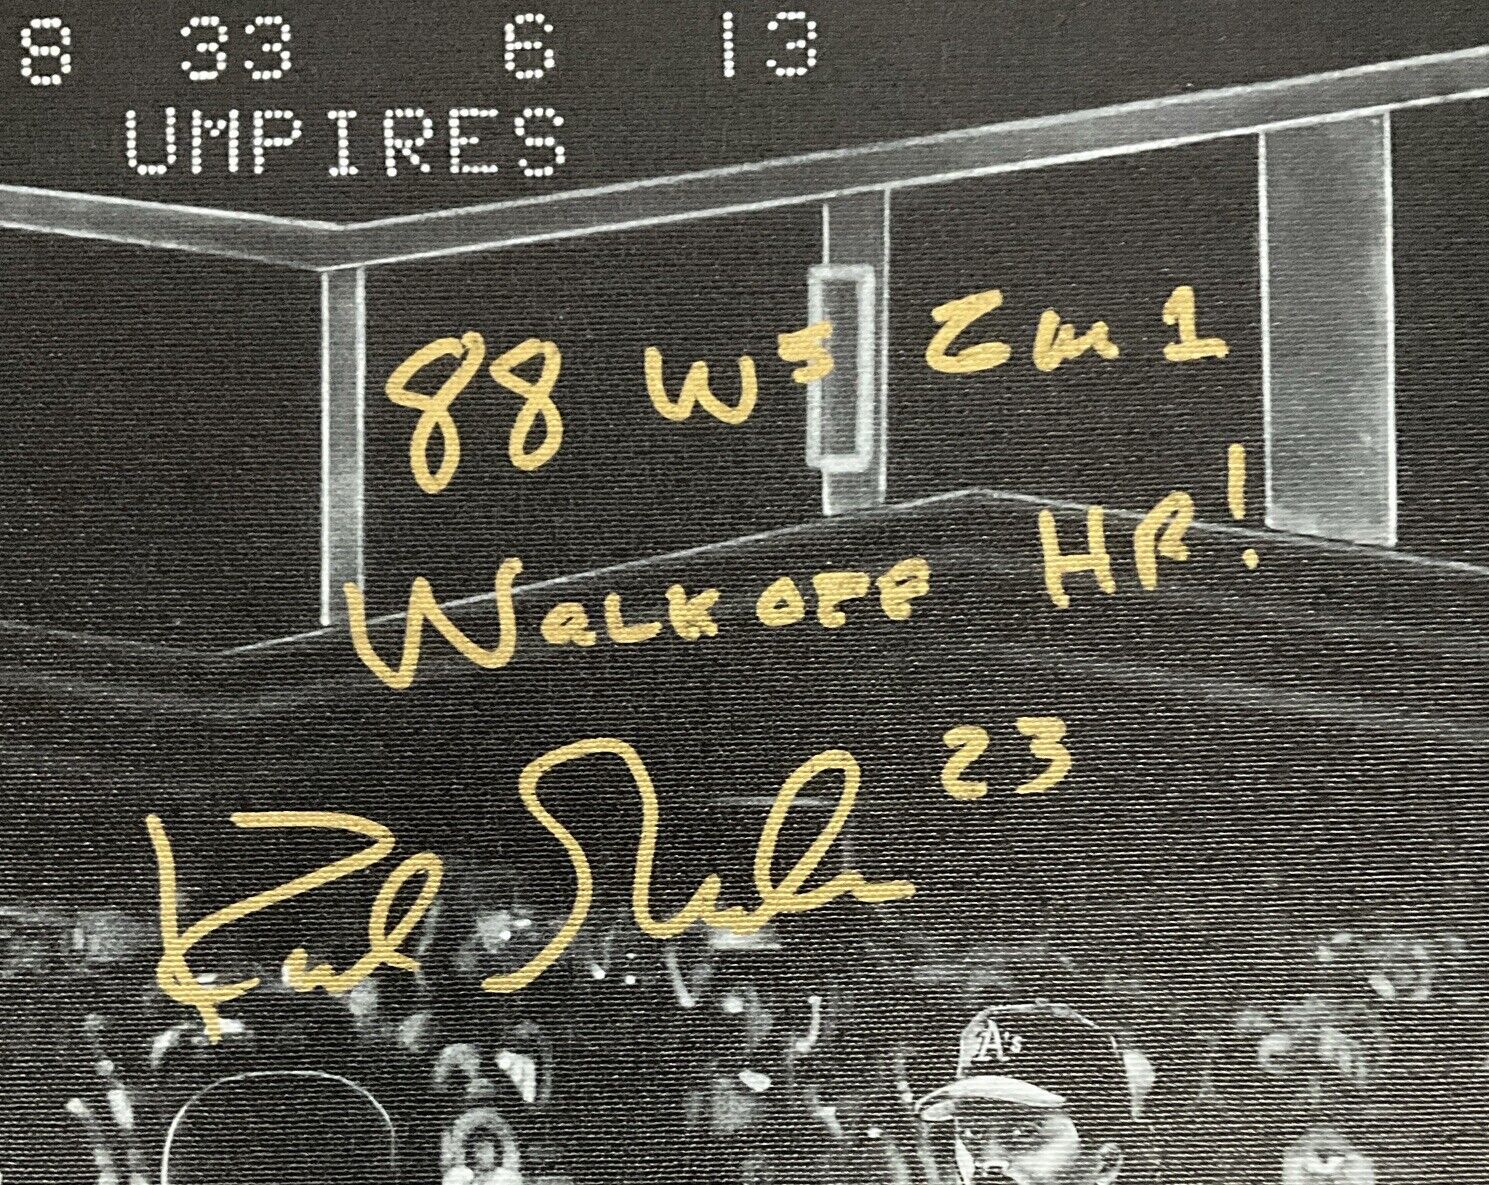 8 33 6 13
UMPIRES
88 WS Gm 1
WALK OFF HR!
Kirk Gibson 23
A's